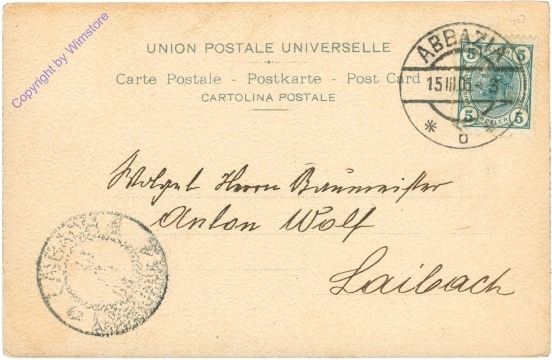 Copyright by Wimstore
UNION POSTALE UNIVERSELLE
Carte Postale - Postkarte - Post Card
CARTOLINA POSTALE
ABBAZIA
15 III 05
* b *
5 5
5 5
Wolgeb Herrn Baumeister
Anton Wolf
Laibach
LAIBACH